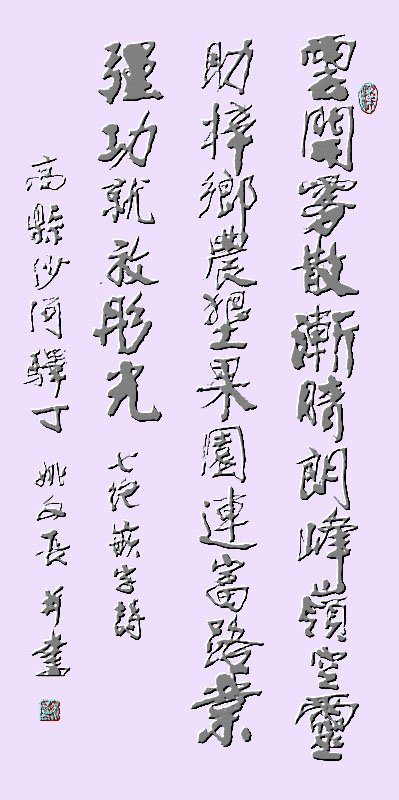 雲開雾散漸晴朗峰嶺空靈
助梓鄉農墾果園連富路業
强功就放彤光 七绝嵌字詩
高縣沙河驛丁 姚文長并書